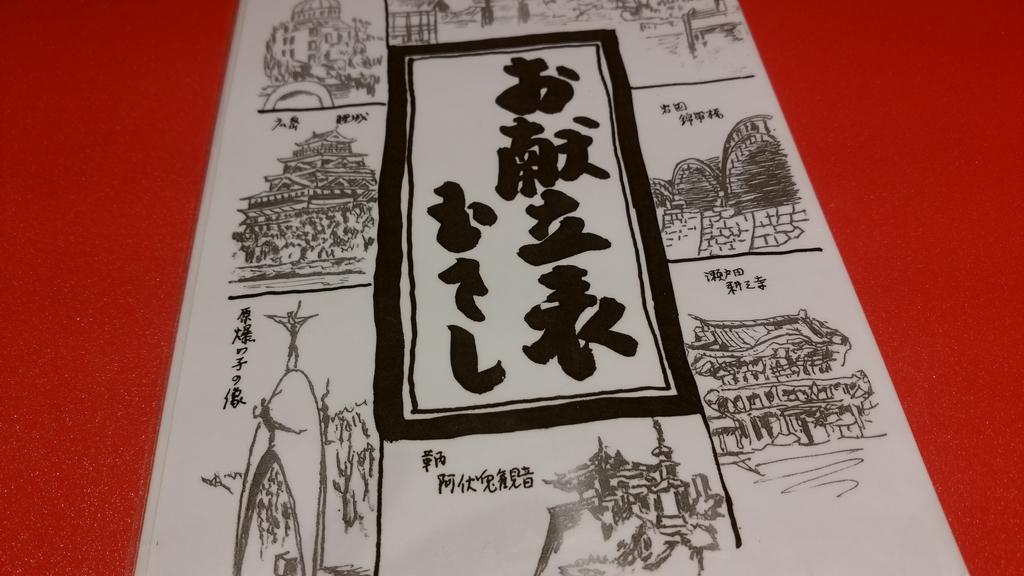 お献立表
むさし
広島 鯉城
岩国
錦帯橋
瀬戸田
耕三寺
原爆の子の像
鞆
阿伏兎観音